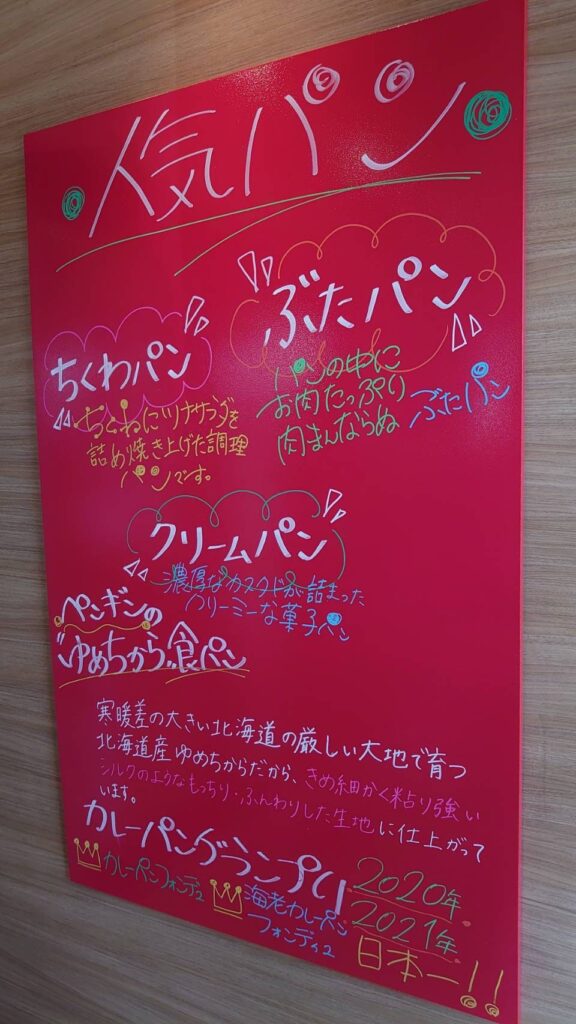 人気パン
ちくわパン
ちくわにツナサラダを
詰め焼き上げた調理
パンです。
ぶたパン
パンの中に
お肉たっぷり
肉まんならぬ ぶたパン
クリームパン
濃厚なカスタードが詰まった
クリーミーな菓子パン
ペンギンの
"ゆめちから"食パン
寒暖差の大きい北海道の厳しい大地で育つ
北海道産ゆめちからだから、きめ細かく粘り強い
シルクのようなもっちり・ふんわりした生地に仕上がって
います。
カレーパングランプリ
カレーパンフォンデュ
海老カレーパン
フォンデュ
2020年
2021年
日本一!!